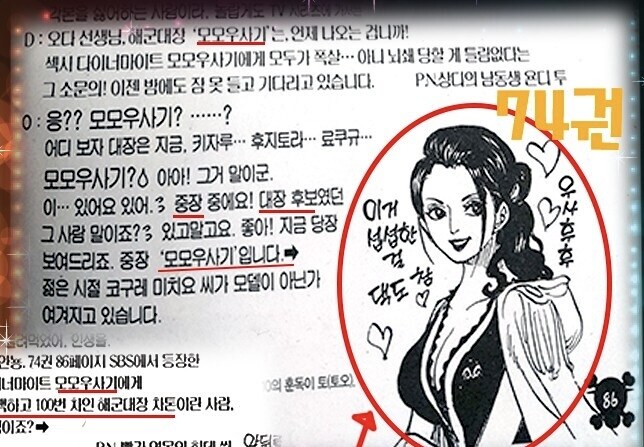 D : 오다 선생님, 해군대장 '모모우사기'는, 언제 나오는 겁니까!
섹시 다이너마이트 모모우사기에게 모두가 폭살… 아니 뇌쇄 당할 게 틀림없다는
그 소문의! 이젠 밤에도 잠 못 들고 기다리고 있습니다. P.N.상디의 남동생 욘디 투
74권
O : 응?? 모모우사기? ……?
어디 보자 대장은 지금, 키자루… 후지토라… 료쿠규…
모모우사기? 아아! 그거 말이군.
이… 있어요 있어. 중장 중에요! 대장 후보였던
그 사람 말이죠? 있고말고요. 좋아! 지금 당장
보여드리죠. 중장 '모모우사기'입니다.➡
젊은 시절 코구레 미치요 씨가 모델이 아닌가
여겨지고 있습니다.
이거
섭섭한
걸
댁도 참
우사후후후
86
안뇽. 74권 86페이지 SBS에서 등장한
너마이트 모모우사기에게
하고 100번 차인 해군대장 차돈이란 사람,
이죠?➡
00의 훈독이 토(토오).